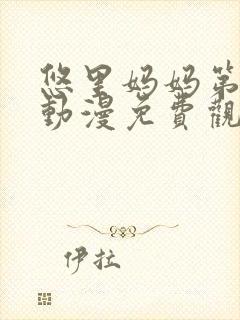 悠里妈妈第
動漫免費觀
伊拉